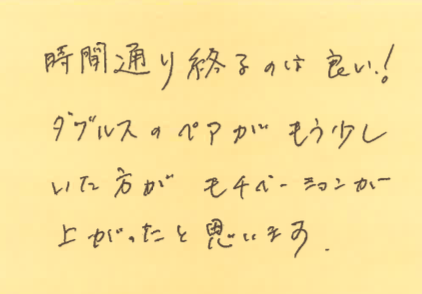 時間通り終るのは良い!
ダブルスのペアがもう少し
いた方がモチベーションが
上がったと思います.